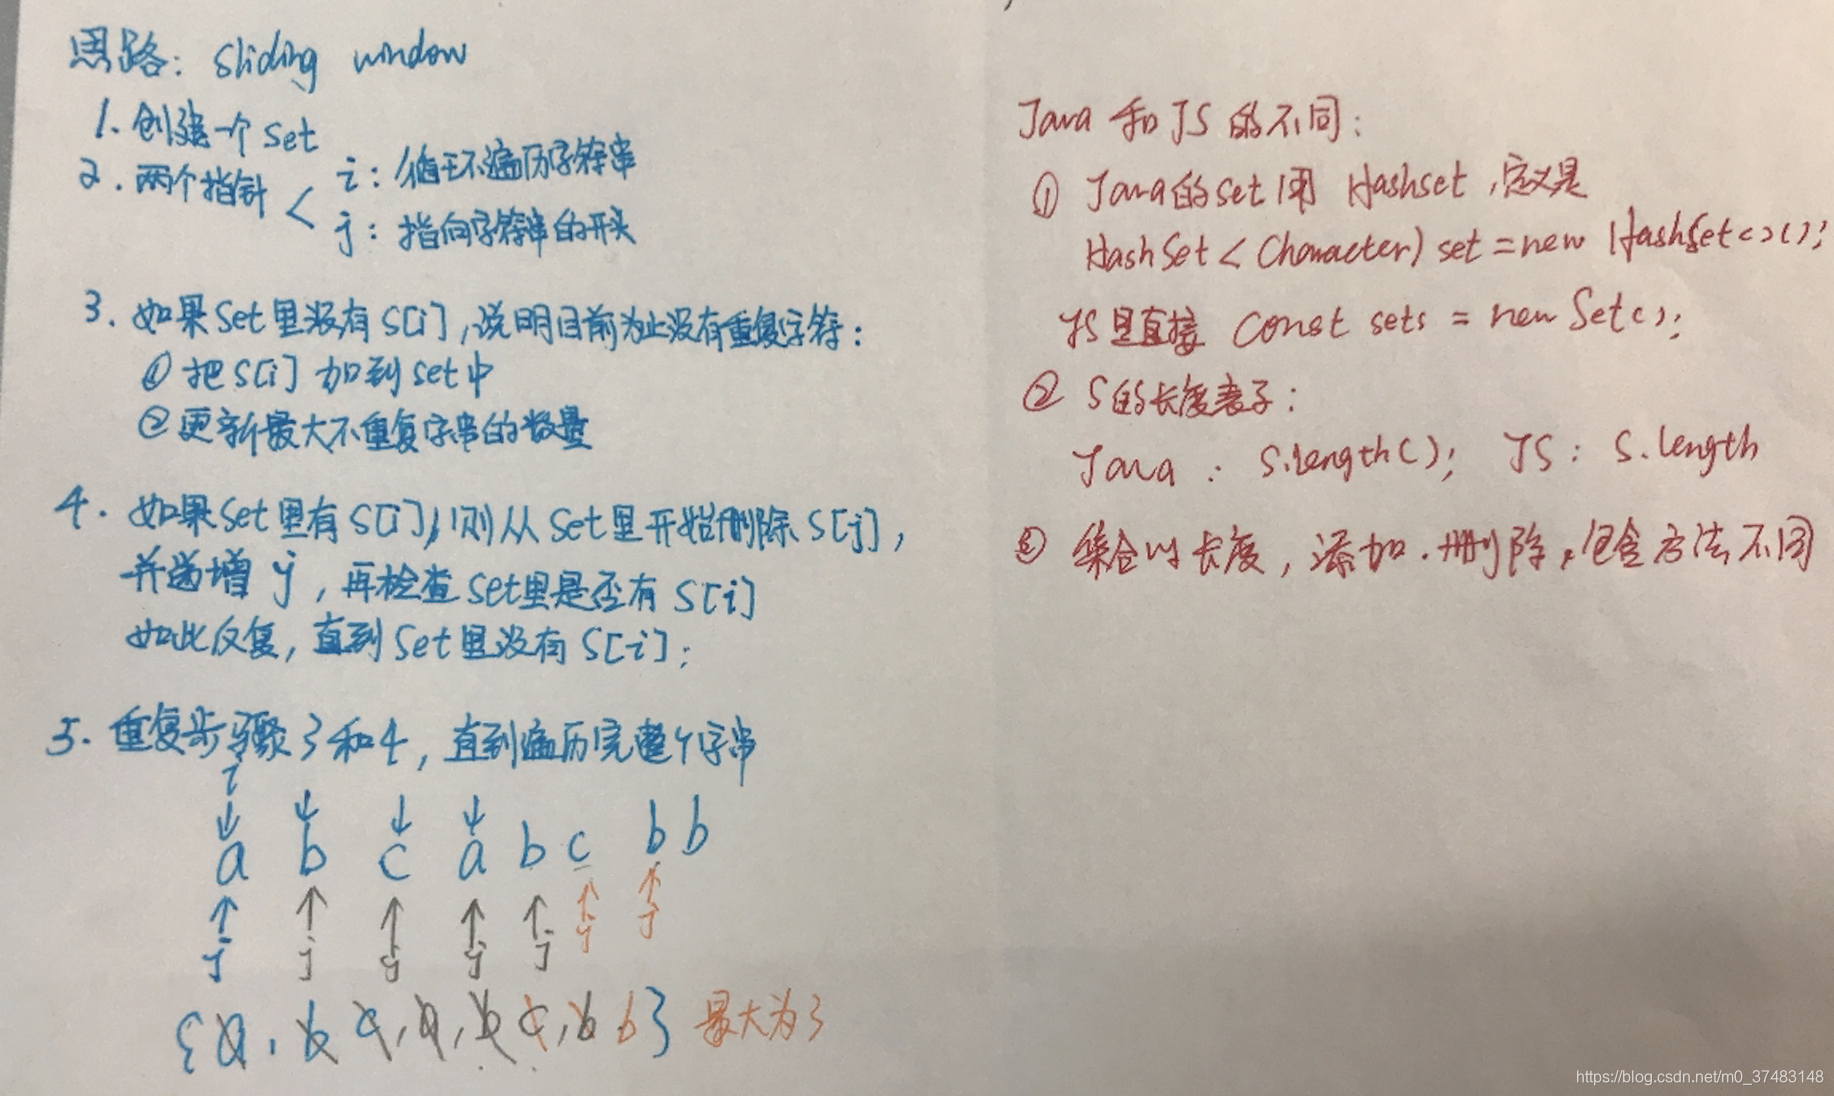 思路: sliding window
1. 创建一个 set
2. 两个指针 <
i: 值于不遍历字符串
j: 指向字符串的开头
3. 如果 set 里没有 s[i], 说明目前为止没有重复字符:
① 把 s[i] 加到 set 中
② 更新最大不重复字串的数量
4. 如果 set 里有 s[i], 则从 set 里开始删除 s[j],
并递增 j, 再检查 set 里是否有 s[i]
如此反复, 直到 set 里没有 s[i];
5. 重复步骤 3 和 4, 直到遍历完整个字串
i
a b c a b c b b
j j j j j j j
{a, b c, a, b c, b b} 最大为3
Java 和 JS 的不同:
① Java 的 set 用 Hashset, 定义是
HashSet < Character) set = new HashSet<>();
JS 里直接 const sets = new Set();
② S 的长度表子:
Java : S.length(); JS: S.length
③ 集合的长度, 添加. 删除, 包含方法不同
https://blog.csdn.net/m0_37483148